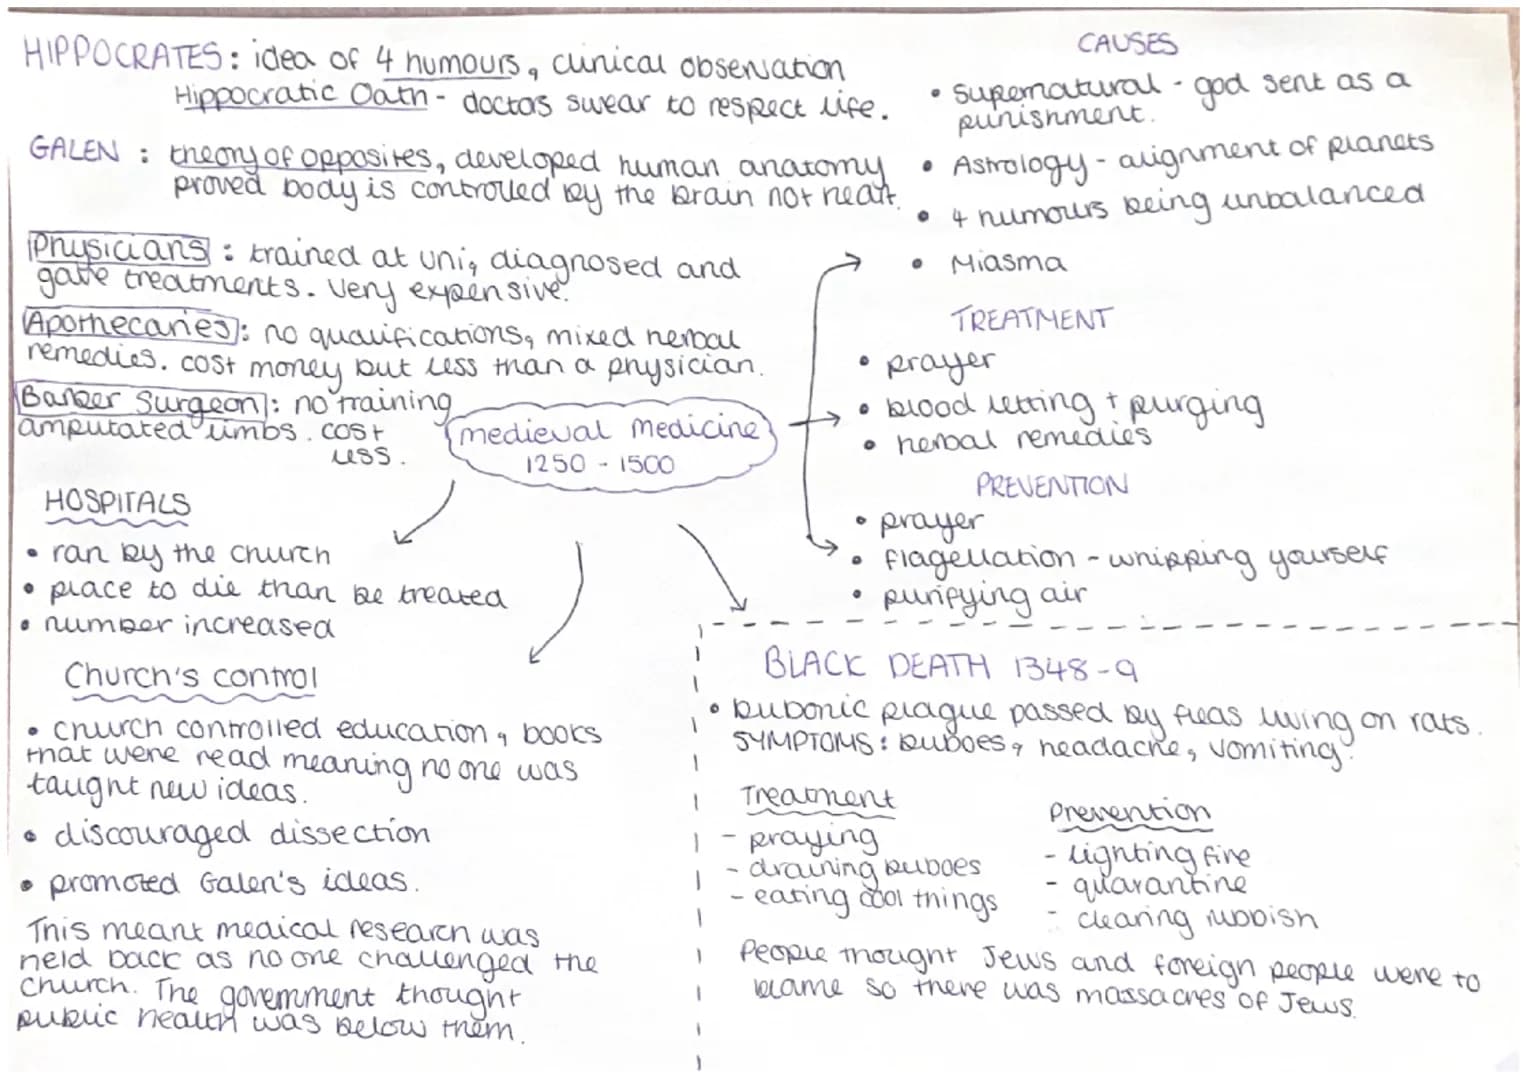 HIPPOCRATES: idea of 4 humours, clinical observation
Hippocratic Oath - doctors swear to respect life.
GALEN: theory of opposites, developed human anatomy
proved body is controlled by the brain not heart.
Physicians: trained at uni, diagnosed and
gave treatments. Very expensive.
Apothecaries: no qualifications, mixed herbal
remedies. cost money but less than a physician.
Barber Surgeon: no training
amputated limbs. cost
less.
medieval medicine
1250 - 1500
HOSPITALS
• ran by the church
• place to die than be treated
• number increased
Church's control
• church controlled education, books
that were read meaning no one was
taught new ideas.
• discouraged dissection
• promoted Galen's ideas.
This meant medical research was
held back as no one challenged the
church. The government thought
public health was below them.
CAUSES
• supernatural - god sent as a
punishment.
• Astrology - alignment of planets
• 4 humours being unbalanced
• Miasma
TREATMENT
• prayer
• blood letting + purging
• herbal remedies
PREVENTION
• prayer
• flagellation - whipping yourself
• purifying air
BLACK DEATH 1348-9
• bubonic plague passed by fleas living on rats.
SYMPTOMS: buboes, headache, vomiting.
Treatment
- praying
- draining buboes
- eating cool things
Prevention
- lighting fire
- quarantine
- clearing rubbish
People thought Jews and foreign people were to
blame so there was massacres of Jews.